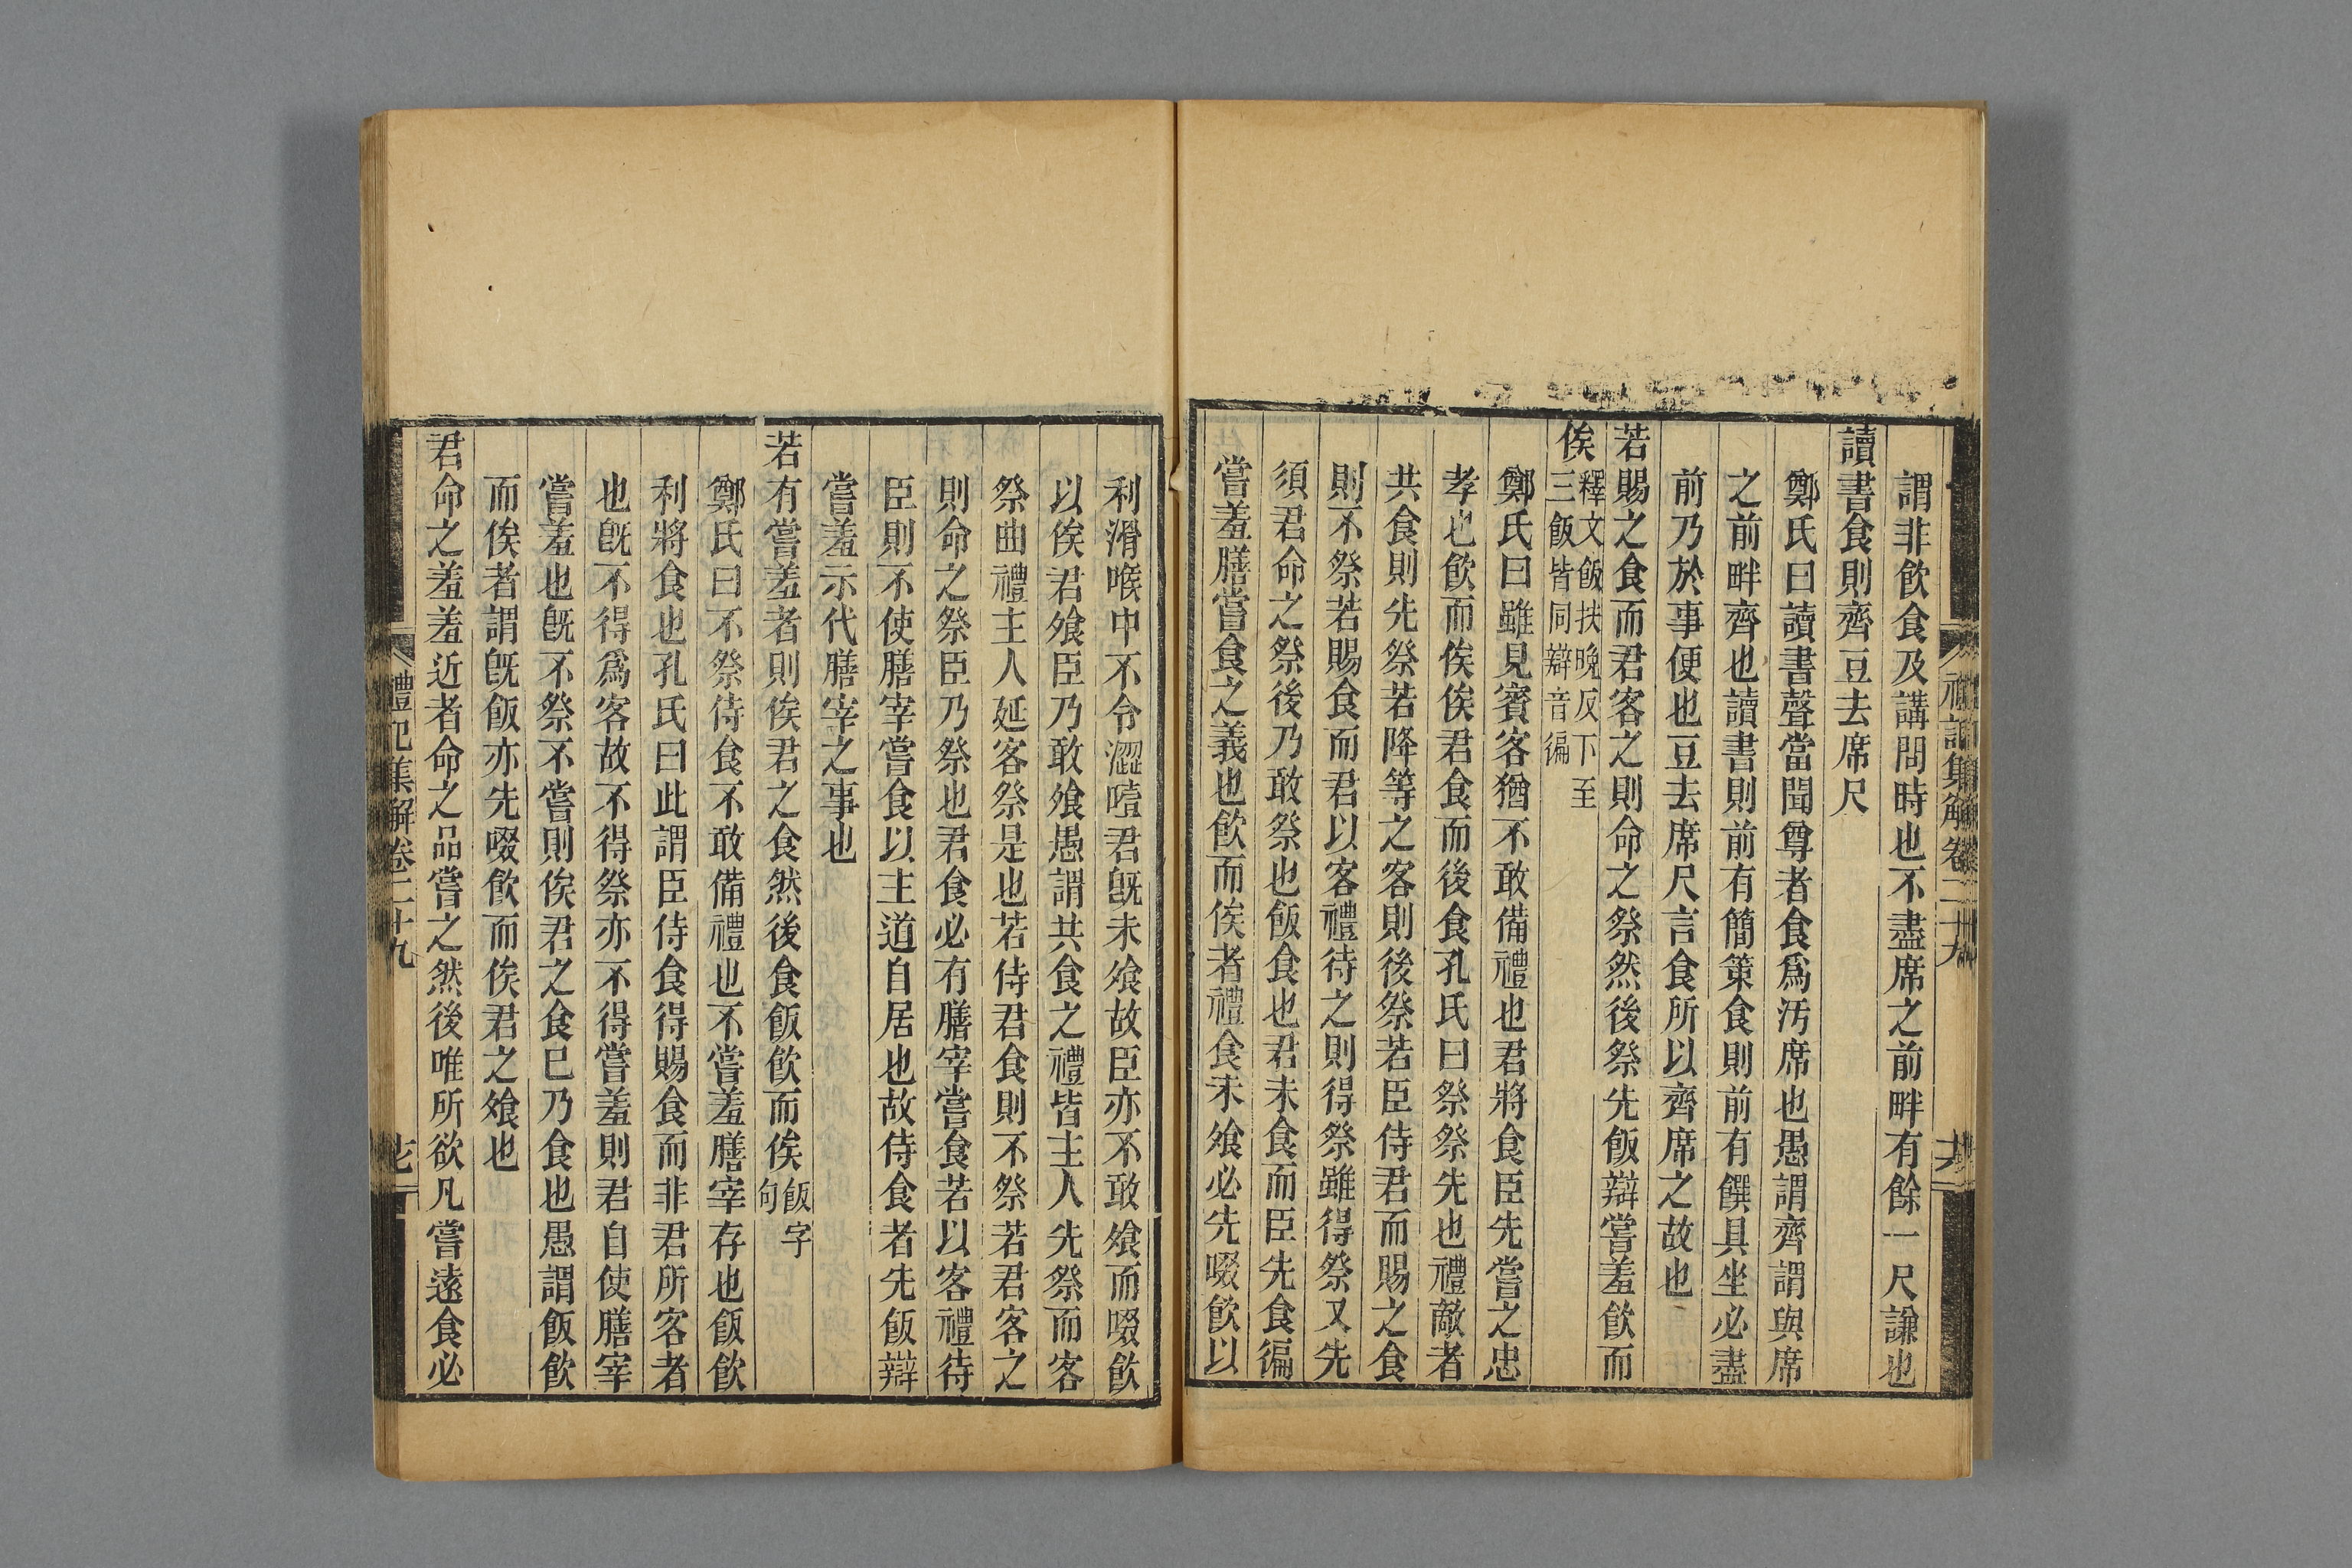 謂非飲食及講問時也不盡席之前畔有餘一尺謙也
讀書食則齊豆去席尺
鄭氏曰讀書聲當聞尊者食爲汚席也愚謂齊謂與席
之前畔齊也讀書則前有簡策食則前有饌具坐必盡
前乃於事便也豆去席尺言食所以齊席之故也
若賜之食而君客之則命之祭然後祭先飯辯嘗羞飲而
俟
釋文飯扶晚反下至
三飯皆同辯音徧
鄭氏曰雖見賓客猶不敢備禮也君將食臣先嘗之忠
孝也飲而俟俟君食而後食孔氏曰祭祭先也禮敵者
共食則先祭若降等之客則後祭若臣侍君而賜之食
則不祭若賜食而君以客禮待之則得祭雖得祭又先
須君命之祭後乃敢祭也飯食也君未食而臣先食徧
嘗羞膳嘗食之義也飲而俟者禮食未飧必先啜飲以
禮記集解卷二十九
利滑喉中不令澀噎君旣未飧故臣亦不敢飧而啜飲
以俟君飧臣乃敢飧愚謂共食之禮皆主人先祭而客
祭曲禮主人延客祭是也若侍君食則不祭若君客之
則命之祭臣乃祭也君食必有膳宰嘗食若以客禮待
臣則不使膳宰嘗食以主道自居也故侍食者先飯辯
嘗羞示代膳宰之事也
若有嘗羞者則俟君之食然後食飯飲而俟
飯字
句
鄭氏曰不祭侍食不敢備禮也不嘗羞膳宰存也飯飲
利將食也孔氏曰此謂臣侍食得賜食而非君所客者
也旣不得爲客故不得祭亦不得嘗羞則君自使膳宰
嘗羞也旣不祭不嘗則俟君之食已乃食也愚謂飯飲
而俟者謂旣飯亦先啜飲而俟君之飧也
君命之羞羞近者命之品嘗之然後唯所欲凡嘗遠食必
禮記集解卷二十九